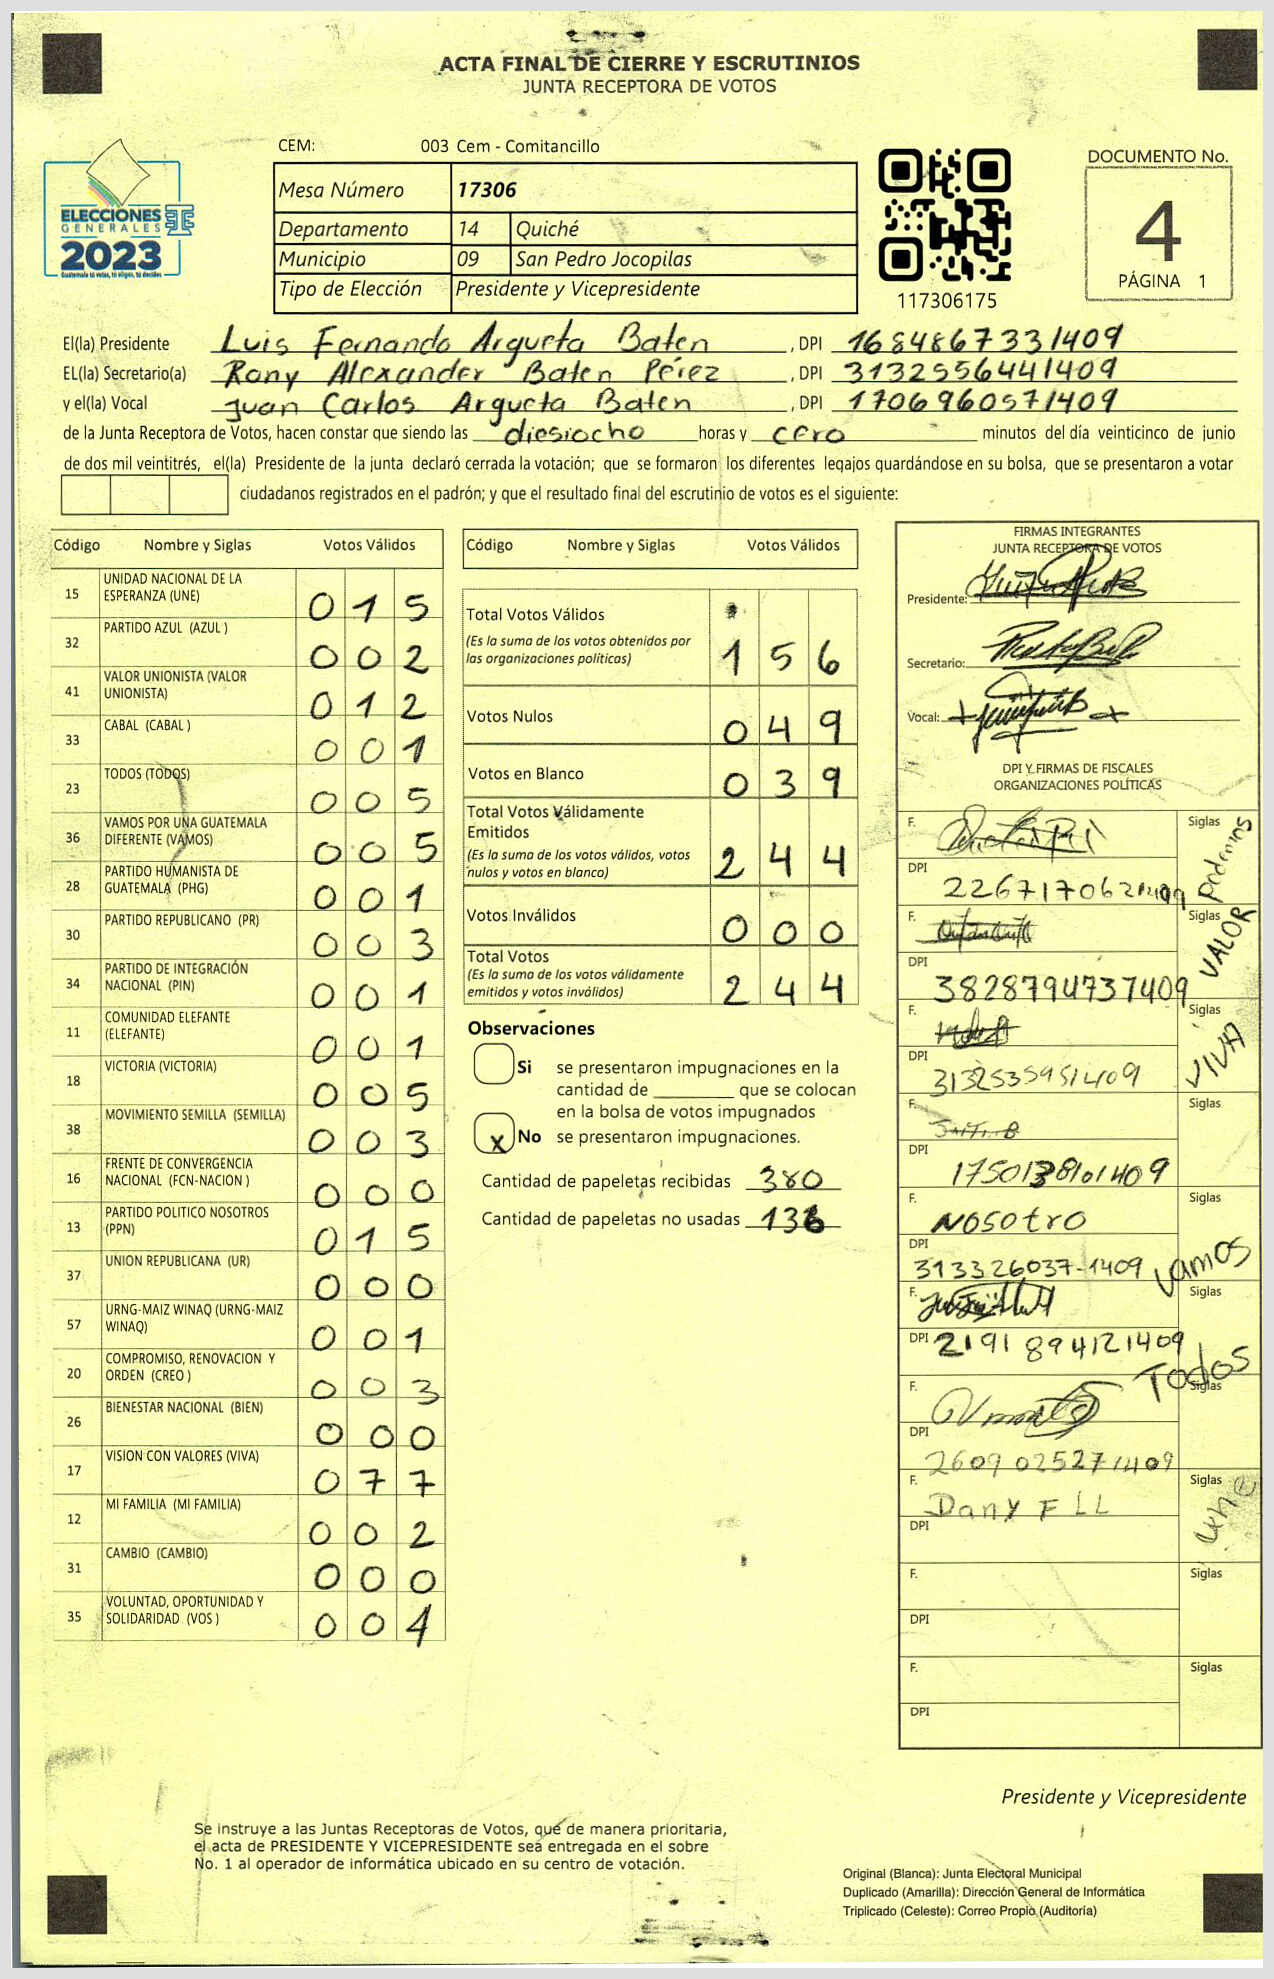 ACTA FINAL DE CIERRE Y ESCRUTINIOS
JUNTA RECEPTORA DE VOTOS
CEM: 003 Cem - Comitancillo
ELECCIONES
GENERALES
2023
Guatemala tú votas, tú eliges, tú decides
Mesa Número 17306
Departamento 14 Quiché
Municipio 09 San Pedro Jocopilas
Tipo de Elección Presidente y Vicepresidente
117306175
DOCUMENTO No.
4
PÁGINA 1
El(la) Presidente Luis Fernando Argueta Baten , DPI 1684867331409
EL(la) Secretario(a) Rony Alexander Baten Pérez , DPI 3132556441409
y el(la) Vocal Juan Carlos Argueta Baten , DPI 1706960571409
de la Junta Receptora de Votos, hacen constar que siendo las diesiocho horas y cero minutos del día veinticinco de junio
de dos mil veintitrés, el(la) Presidente de la junta declaró cerrada la votación; que se formaron los diferentes legajos guardándose en su bolsa, que se presentaron a votar
ciudadanos registrados en el padrón; y que el resultado final del escrutinio de votos es el siguiente:
Código Nombre y Siglas Votos Válidos
15 UNIDAD NACIONAL DE LA
ESPERANZA (UNE) 0 1 5
32 PARTIDO AZUL (AZUL ) 0 0 2
41 VALOR UNIONISTA (VALOR
UNIONISTA) 0 1 2
33 CABAL (CABAL ) 0 0 1
23 TODOS (TODOS) 0 0 5
36 VAMOS POR UNA GUATEMALA
DIFERENTE (VAMOS) 0 0 5
28 PARTIDO HUMANISTA DE
GUATEMALA (PHG) 0 0 1
30 PARTIDO REPUBLICANO (PR) 0 0 3
34 PARTIDO DE INTEGRACIÓN
NACIONAL (PIN) 0 0 1
11 COMUNIDAD ELEFANTE
(ELEFANTE) 0 0 1
18 VICTORIA (VICTORIA) 0 0 5
38 MOVIMIENTO SEMILLA (SEMILLA) 0 0 3
16 FRENTE DE CONVERGENCIA
NACIONAL (FCN-NACION ) 0 0 0
13 PARTIDO POLITICO NOSOTROS
(PPN) 0 1 5
37 UNION REPUBLICANA (UR) 0 0 0
57 URNG-MAIZ WINAQ (URNG-MAIZ
WINAQ) 0 0 1
20 COMPROMISO, RENOVACION Y
ORDEN (CREO ) 0 0 3
26 BIENESTAR NACIONAL (BIEN) 0 0 0
17 VISION CON VALORES (VIVA) 0 7 7
12 MI FAMILIA (MI FAMILIA) 0 0 2
31 CAMBIO (CAMBIO) 0 0 0
35 VOLUNTAD, OPORTUNIDAD Y
SOLIDARIDAD (VOS ) 0 0 4
Código Nombre y Siglas Votos Válidos
Total Votos Válidos
(Es la suma de los votos obtenidos por
las organizaciones políticas) 1 5 6
Votos Nulos 0 4 9
Votos en Blanco 0 3 9
Total Votos Válidamente
Emitidos
(Es la suma de los votos válidos, votos
nulos y votos en blanco) 2 4 4
Votos Inválidos 0 0 0
Total Votos
(Es la suma de los votos válidamente
emitidos y votos inválidos) 2 4 4
Observaciones
Si se presentaron impugnaciones en la
cantidad de ________ que se colocan
en la bolsa de votos impugnados
x No se presentaron impugnaciones.
Cantidad de papeletas recibidas 380
Cantidad de papeletas no usadas 136
FIRMAS INTEGRANTES
JUNTA RECEPTORA DE VOTOS
Presidente:
Secretario:
Vocal:
DPI Y FIRMAS DE FISCALES
ORGANIZACIONES POLÍTICAS
F. Siglas Podemos
DPI
F. Siglas VALOR
DPI 3828794737409
F. Siglas VIVA
DPI 3132535951409
F. Siglas
DPI
F. Nosotro Siglas
DPI 313326037-1409 Vamos
F. Siglas
DPI 2191894121409
Todos
F. Siglas
DPI 2609025271409
F. Dany F LL Siglas une
DPI
F. Siglas
DPI
F. Siglas
DPI
Presidente y Vicepresidente
Se instruye a las Juntas Receptoras de Votos, que de manera prioritaria,
el acta de PRESIDENTE Y VICEPRESIDENTE sea entregada en el sobre
No. 1 al operador de informática ubicado en su centro de votación.
Original (Blanca): Junta Electoral Municipal
Duplicado (Amarilla): Dirección General de Informática
Triplicado (Celeste): Correo Propio (Auditoría)